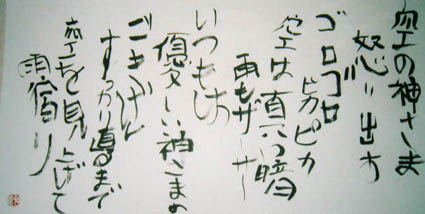 空の神さま
怒り出す
ゴロゴロ
ピカピカ
空は真っ暗
雨もザーザー
いつもは
優しい神さまの
ごきげん
すっかり直るまで
空を見上げて
雨宿り